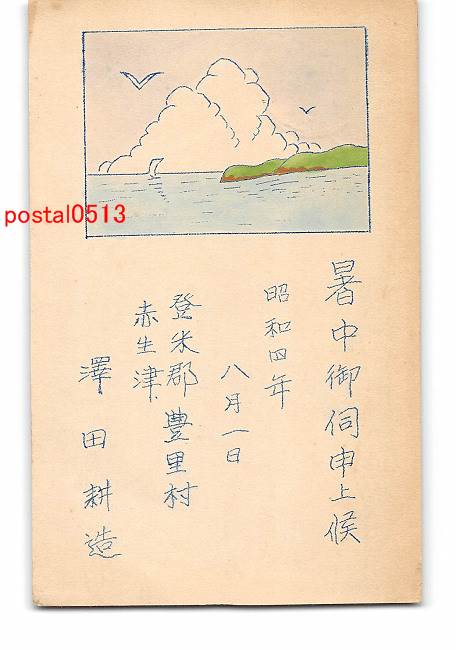 暑中御伺申上候
昭和四年
八月一日
登米郡豊里村
赤生津
澤田耕造
postal0513